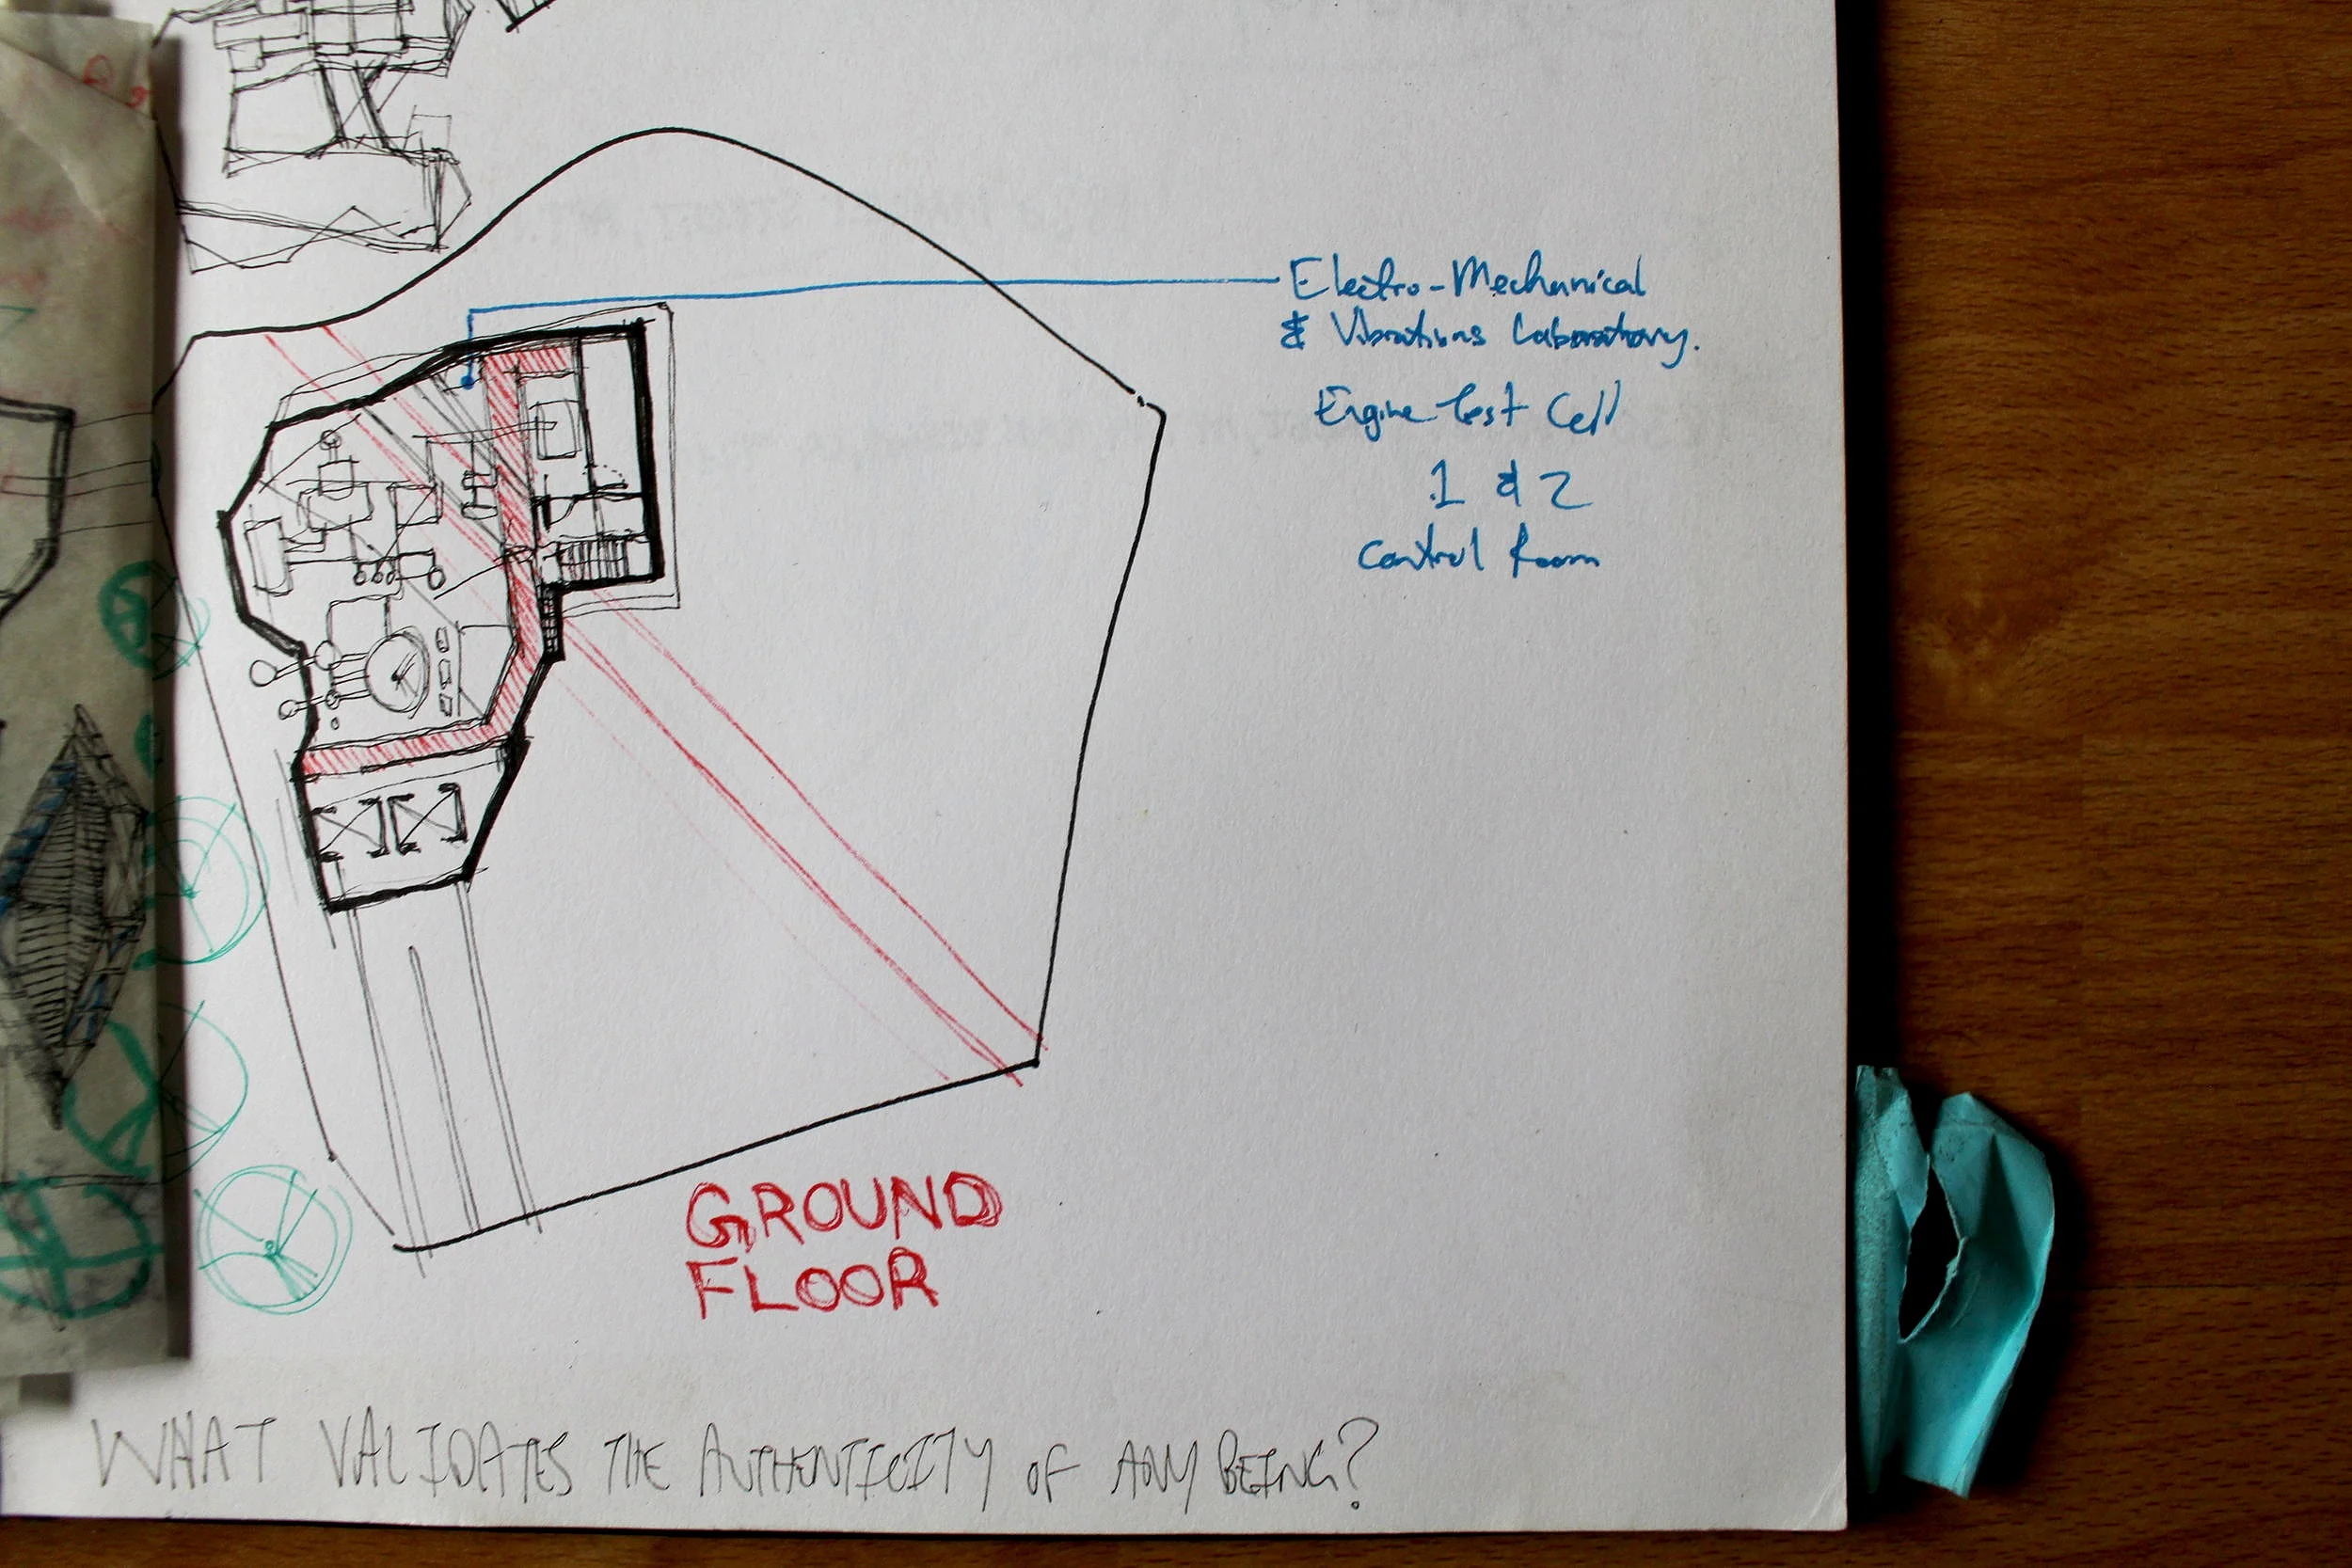 Electro-Mechanical
& Vibrations Laboratory.
Engine Test Cell
1 & 2
Control Room
GROUND
FLOOR
WHAT VALIDATES THE AUTHENTICITY OF ANY BEING?